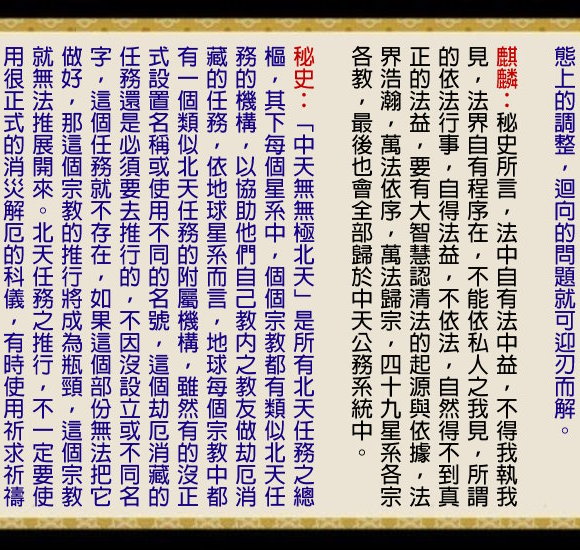 態上的調整，迴向的問題就可迎刃而解。
麒麟：秘史所言，法中自有法中益，不得我執我
見，法界自有程序在，不能依私人之我見，所謂
的依法行事，自得法益，不依法，自然得不到真
正的法益，要有大智慧認清法的起源與依據，法
界浩瀚，萬法依序，萬法歸宗，四十九星系各宗
各教，最後也會全部歸於中天公務系統中。
秘史：「中天無無極北天」是所有北天任務之總
樞，其下每個星系中，個個宗教都有類似北天任
務的機構，以協助他們自己教內之教友做劫厄消
藏的任務，依地球星系而言，地球每個宗教中都
有一個類似北天任務的附屬機構，雖然有的沒正
式設置名稱或使用不同的名號，這個劫厄消藏的
任務還是必須要去推行的，不因沒設立或不同名
字，這個任務就不存在，如果這個部份無法把它
做好，那這個宗教的推行將成為瓶頸，這個宗教
就無法推展開來。北天任務之推行，不一定要使
用很正式的消災解厄的科儀，有時使用祈求祈禱